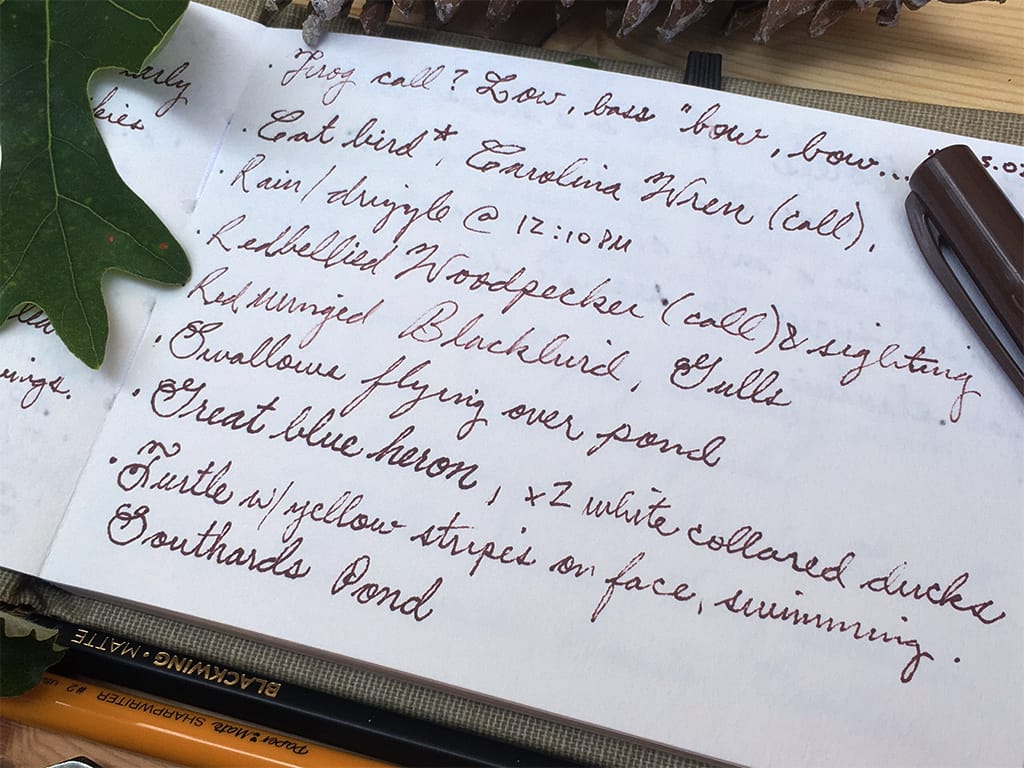 · Frog call? Low, bass "bow, bow...
· Cat bird*, Carolina Wren (call),
· Rain/drizzle @ 12:10PM
· Redbellied Woodpecker (call) & sighting
Redwinged Blackbird, Gulls
· Swallows flying over pond
· Great blue heron, x2 white collared ducks
· Turtle w/yellow stripes on face, swimming.
Southards Pond
BLACKWING · MATTE
Paper Mate SHARPWRITER #2